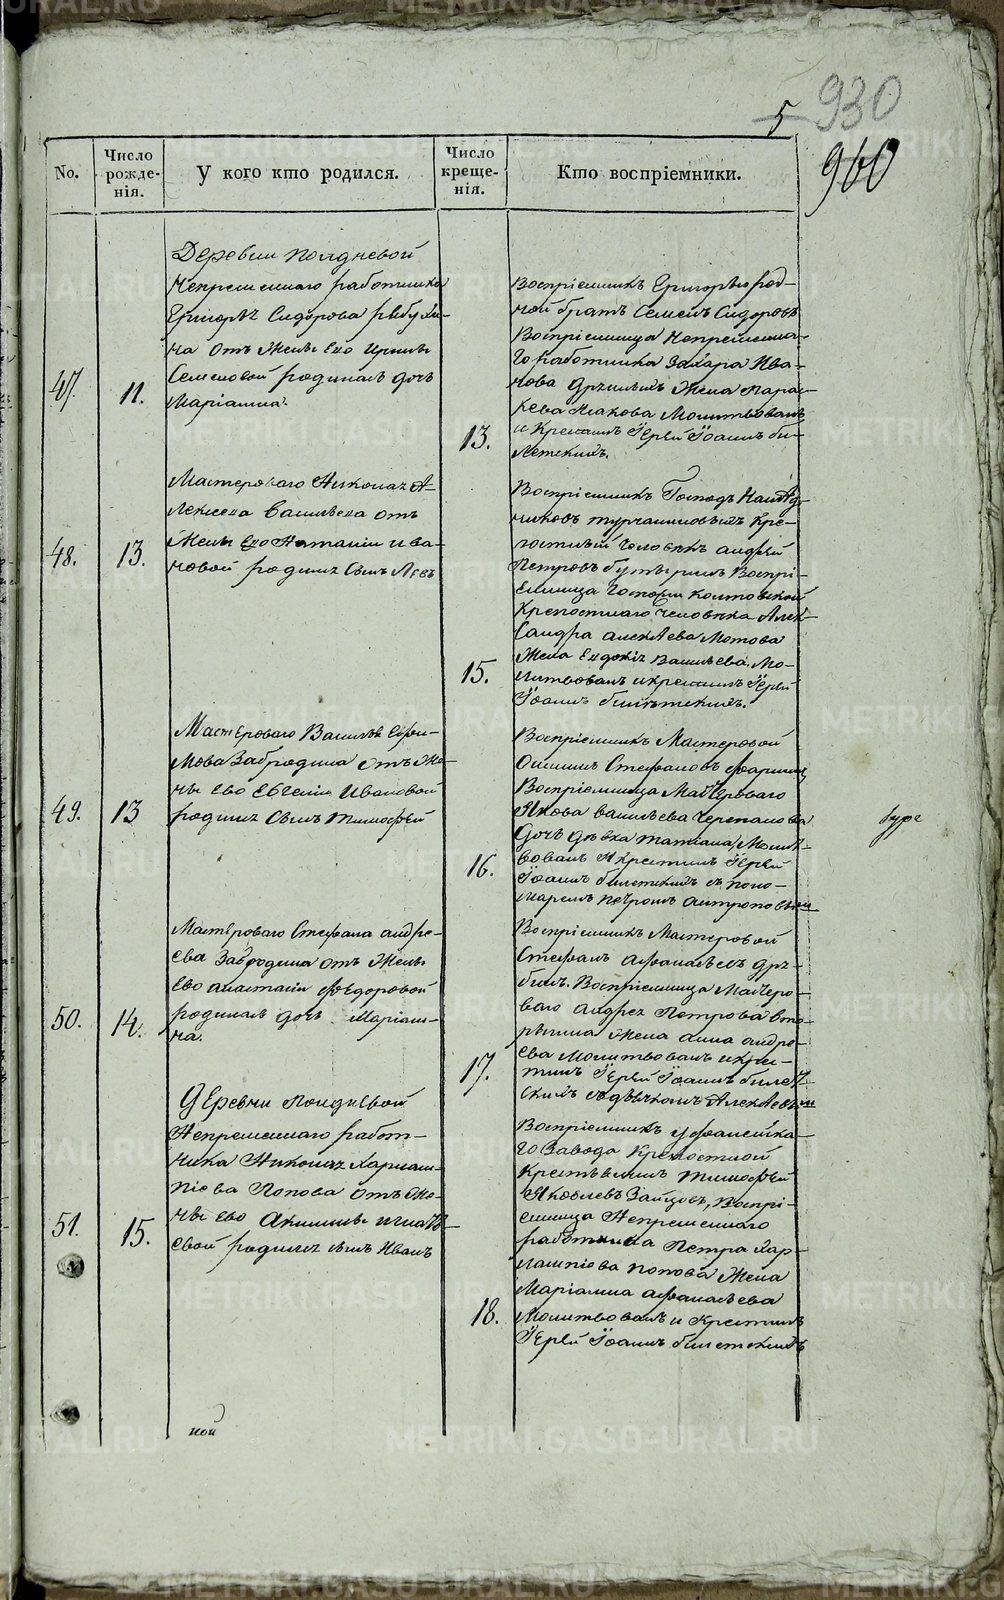 5
930
960
No.
Число рожде-нія.
У кого кто родился.
Число креще-нія.
Кто воспріемники.
47.
11.
Деревни Полдневой
непременнаго работника
Григорья Сидорова
на отъ Жены Ево Ирины
Семеновой родилась дочь
Маріамна.
13.
Воспріемникъ Григорью род-
ной братъ Семенъ Сидоровъ
Воспріемница Непременна-
го работника Захара Ива-
нова Жена Парас-
кева Исакова Молитвовалъ
и Крестилъ Іерей Іоаннъ би-
летскихъ.
48.
13.
Мастероваго Николая А-
лексеева Васильева отъ
Жены Ево Наталіи Ива-
новой родился Сынъ Левъ
15.
Воспріемникъ Господъ Наслѣд-
никовъ турчаниновыхъ Кре-
постный Человѣкъ андрей
Петровъ Воспрі-
емница Госпожи
Крепостнаго человека Алек-
сандра алексѣева Мотова
Жена Евдокія Васильева. Мо-
литвовалъ и крестилъ Іерей
Іоаннъ билетскихъ.
49.
13
Мастероваго Василья Ефи-
мова Забродина отъ Же-
ны Ево Евгеніи Ивановой
родился Сынъ Тимофей
16.
Воспріемникъ Мастеровой
Стефановъ
Воспріемница Мастероваго
Якова васильева Черепанова
дочь девка татіана, Молит-
вовалъ и крестилъ Іерей
Іоаннъ билетскихъ с поно-
маремъ Петромъ антроповымъ
50.
14.
Мастероваго Стефана андре-
ева Забродина отъ Жены
Ево анастасіи Федоровой
родилась дочь Маріам-
на.
17.
Воспріемникъ Мастеровой
Стефанъ афанасьевъ
Воспріемница Мастеро-
ваго Андрея Петрова
Жена анна андре-
ева Молитвовалъ и крес-
тилъ Іерей Іоаннъ билет-
скихъ с дьячкомъ Алексѣевымъ
51.
15.
Деревни Полдневой
Непременнаго работ-
ника Николая Харлам-
піева Попова отъ Же-
ны Ево Акилины Игнать-
евой родился сынъ Иванъ
18.
Воспріемникъ уфалейска-
го Завода Крепостной
Крестьянинъ Тимофей
Яковлевъ Зайцовъ, Воспрі-
емница Непременнаго
работника Петра Хар-
лампіова Попова Жена
Маріамна афанасьева
Молитвовалъ и Крестилъ
Іерей Іоаннъ билетскихъ
ной